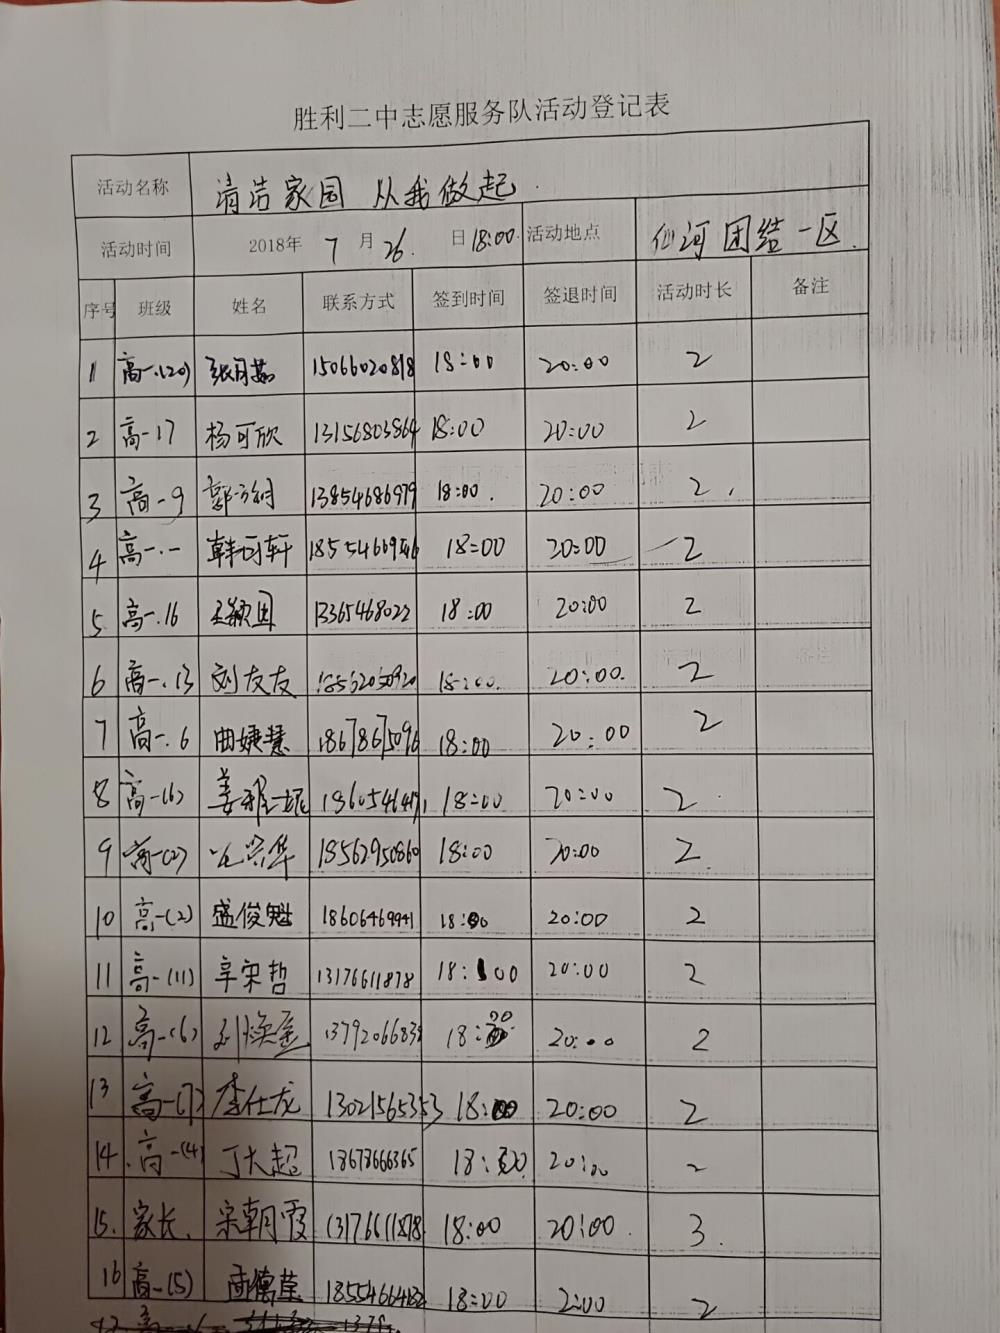 胜利二中志愿服务队活动登记表
活动名称 清洁家园 从我做起.
活动时间 2018年 7 月 26. 日 18:00. 活动地点 仙河团结一区.
序号 班级 姓名 联系方式 签到时间 签退时间 活动时长 备注
1 高一.(20) 张月茹 15066020818 18:00 20:00 2
2 高一17 杨可欣 13156803864 18:00 20:00 2
3 高一9 13854686979 18:00. 20:00 2.
4 高一.一 韩可轩 18:00 20:00 2
5 高一.16 13365468022 18:00 20:00 2
6 高一.13 刘友友 18:00. 20:00. 2
7 高一.6 曲婕慧 18678675096 18:00 20:00 2
8 高一(6) 姜雅妮 18:00 20:00 2.
9 高一(2) 18562950860 18:00 20:00 2.
10 高一(2) 盛俊魁 18606469941 18:00 20:00 2
11 高一(11) 辛宋哲 13176611878 18:00 20:00 2
12 高一(6) 1379206683 18:00 20:00 2
13 高一(7) 李仕龙 13021565353 18:00 20:00 2
14. 高一(4) 丁大超 18678666365 18:00 20:00 2
15. 家长. 宋朝霞 13176611878 18:00 20:00. 3.
16 高一(5) 18:00 2:00 2